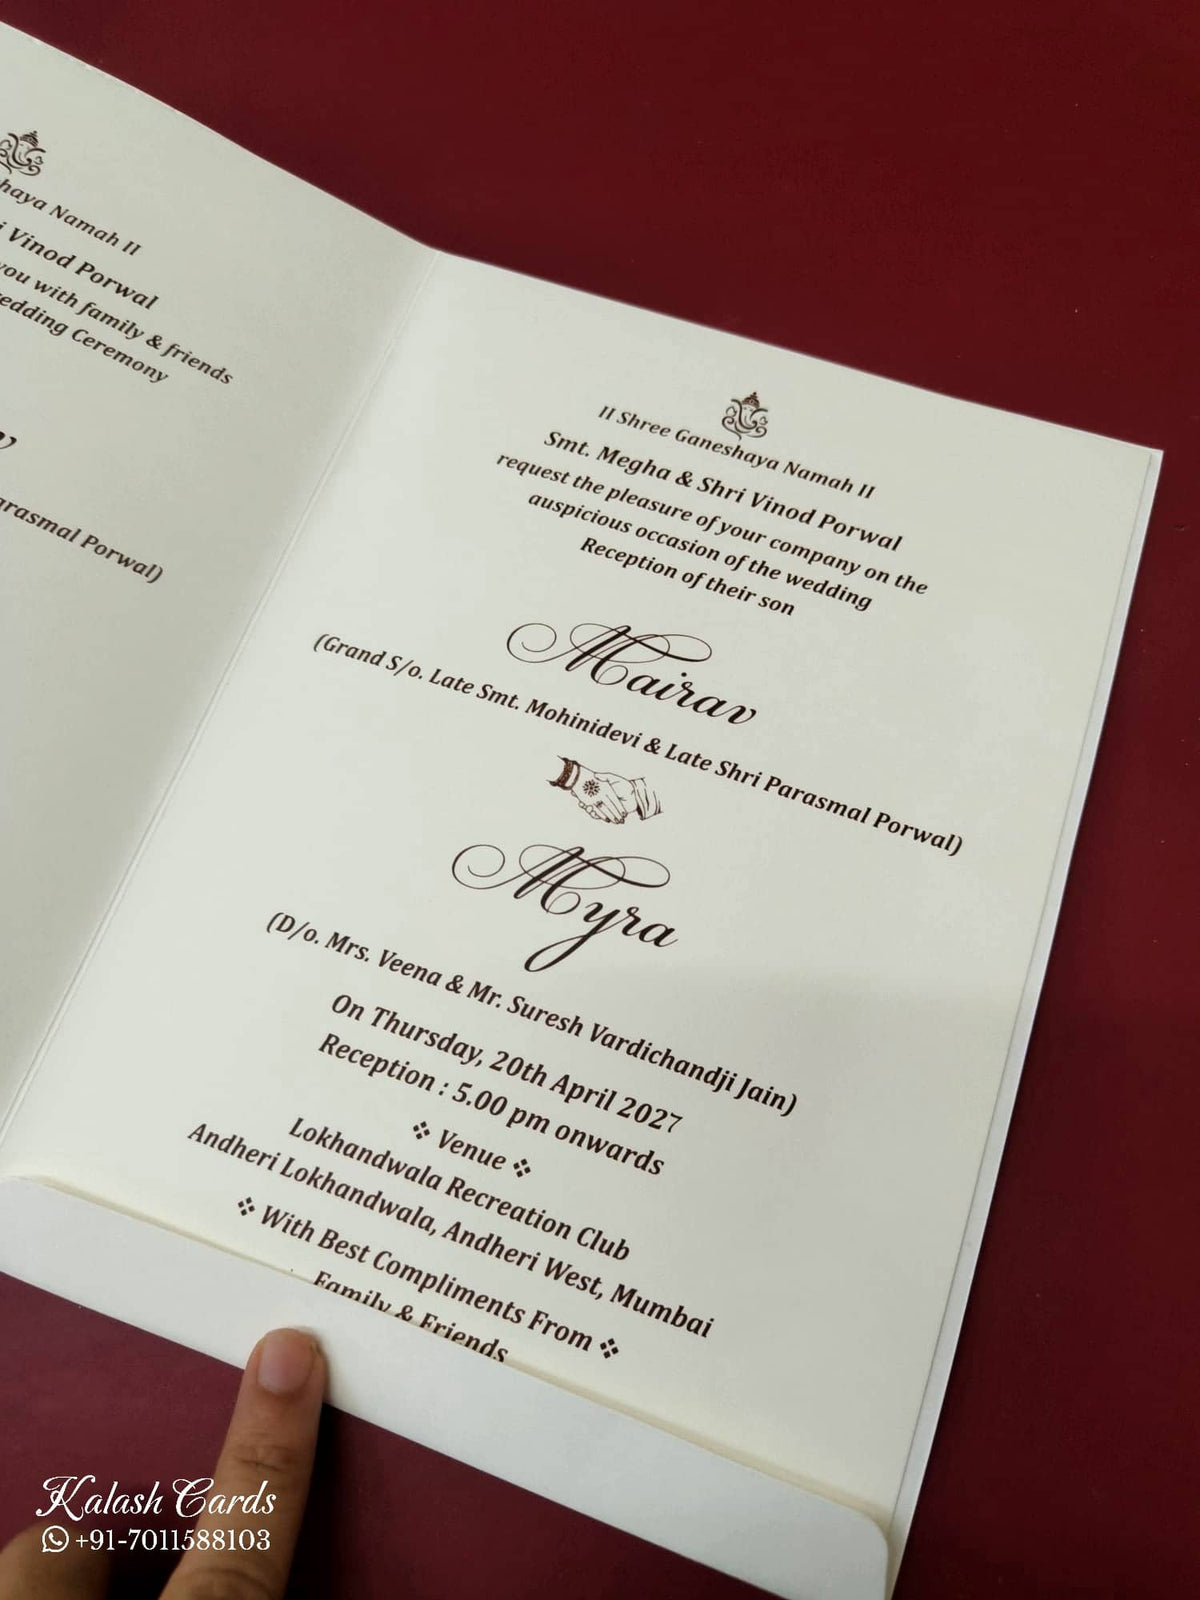 haya Namah II
i Vinod Porwal
you with family & friends
edding Ceremony
v
arasmal Porwal)
II Shree Ganeshaya Namah II
Smt. Megha & Shri Vinod Porwal
request the pleasure of your company on the
auspicious occasion of the wedding
Reception of their son
Mairav
(Grand S/o. Late Smt. Mohinidevi & Late Shri Parasmal Porwal)
Myra
(D/o. Mrs. Veena & Mr. Suresh Vardichandji Jain)
On Thursday, 20th April 2027
Reception : 5.00 pm onwards
❖ Venue ❖
Lokhandwala Recreation Club
Andheri Lokhandwala, Andheri West, Mumbai
❖ With Best Compliments From ❖
Family & Friends
Kalash Cards
+91-7011588103